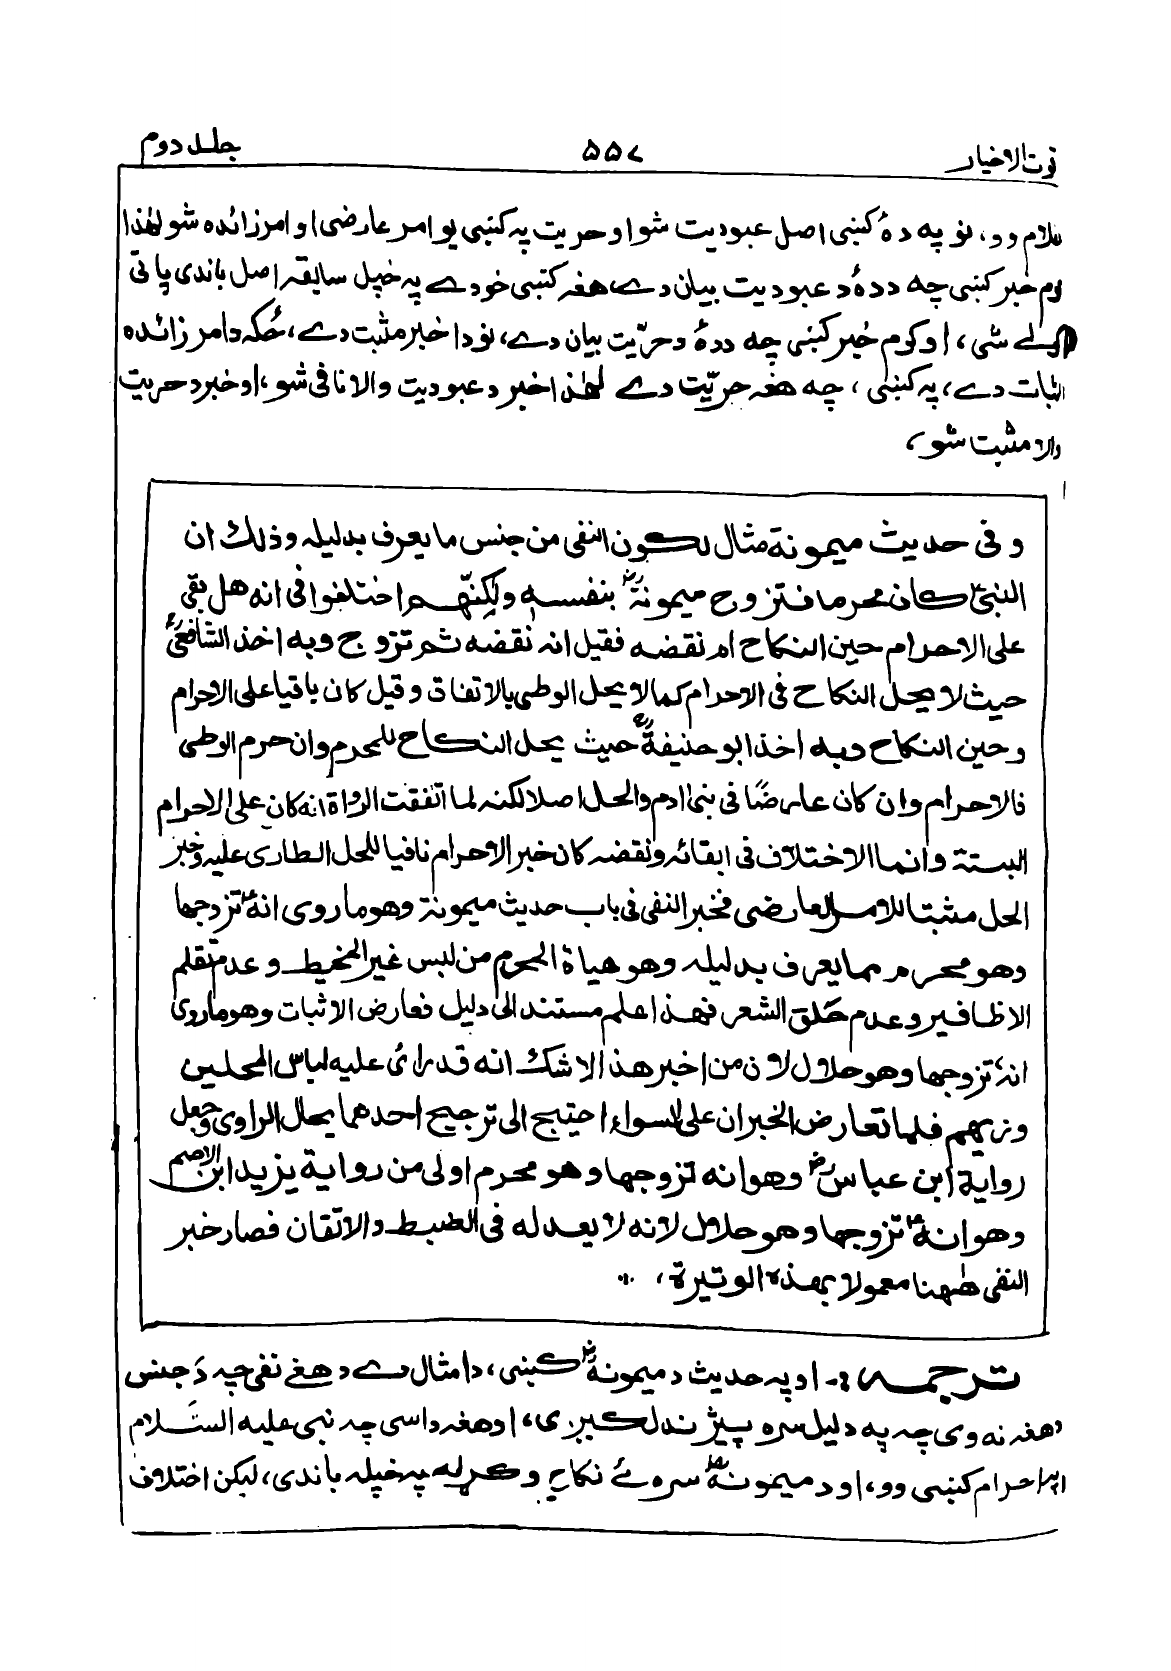 قوت الاخیار ۵۵۷ جلد دوم
غلام وو، نو په دهٔ کښې اصل عبودیت شو او حریت په کښې یو امر عارضی او امر زائده شو لهٰذا
کوم خبر کښې چه ددهٔ د عبودیت بیان دے، هغه کښې خودے په خپل سابقه اصل باندې پاتې
کولے شی، او کوم خبر کښې چه ددهٔ د حرّیت بیان دے، نو دا خبر مثبت دے، ځکه دا امر زائده
اثبات دے، په کښې، چه هغه حریّت دے لهٰذا خبر د عبودیت والا نافی شو، او خبر د حریت
والا مثبت شو،
و فی حدیث میمونة مثال لکون النفی من جنس ما یعرف بدلیله وذلك ان
النبیؐ کان محرما فتزوج میمونةؓ بنفسه ولٰکنّهم اختلفوا فی انه هل بقی
علی الاحرام حین النکاح ام نقضه فقیل انه نقضه ثم تزوج وبه اخذ الشافعیؒ
حیث لا یحل النکاح فی الاحرام کما لا یحل الوطی بالاتفاق وقیل کان باقیا علی الاحرام
وحین النکاح وبه اخذ ابو حنیفةؒ حیث یحل النکاح للمحرم وان حرم الوطی
فالاحرام وان کان عارضًا فی بنی ادم والحل اصلا لکنه لما اتفقت الرواة انه کان علی الاحرام
البتة وانما الاختلاف فی ابقائه ونقضه کان خبر الاحرام نافیا للحل الطاری علیه وخبر
الحل مثبتا للامر العارضی فخبر النفی فی باب حدیث میمونة وهو ما روی انهؐ تزوجها
وهو محرم مما یعرف بدلیله وهو هیاة المحرم من لبس غیر المخیط وعدم تقلم
الاظافیر وعدم حَلق الشعر فهذا علم مستند الی دلیل فعارض الاثبات وهو ما روی
انهؑ تزوجها وهو حلال لان من اخبر هذا لا شك انه قد رأی علیه لباس المحلین
وزیهم فلما تعارض الخبران علی السواء احتیج الی ترجیح احدهما بحال الراوی وجعل
روایة ابن عباسؓ وهو انه تزوجها وهو محرم اولی من روایة یزید ابن الاصم
وهو انهؑ تزوجها وهو حلال لانه لا یعدله فی الضبط والاتقان فصار خبر
النفی هٰهنا معمولا بهذه الوتیرة،
ترجمه :- او په حدیث د میمونهؓ کښې، دا مثال دے د هغے نفی چه دَ جنس
دهغه نه وی چه په دلیل سره پیژندل کیږی، او هغه داسې چه نبی علیه السّلام
په احرام کښې وو، او د میمونهؓ سره ئے نکاح وکړله په خپله باندې، لیکن اختلاف